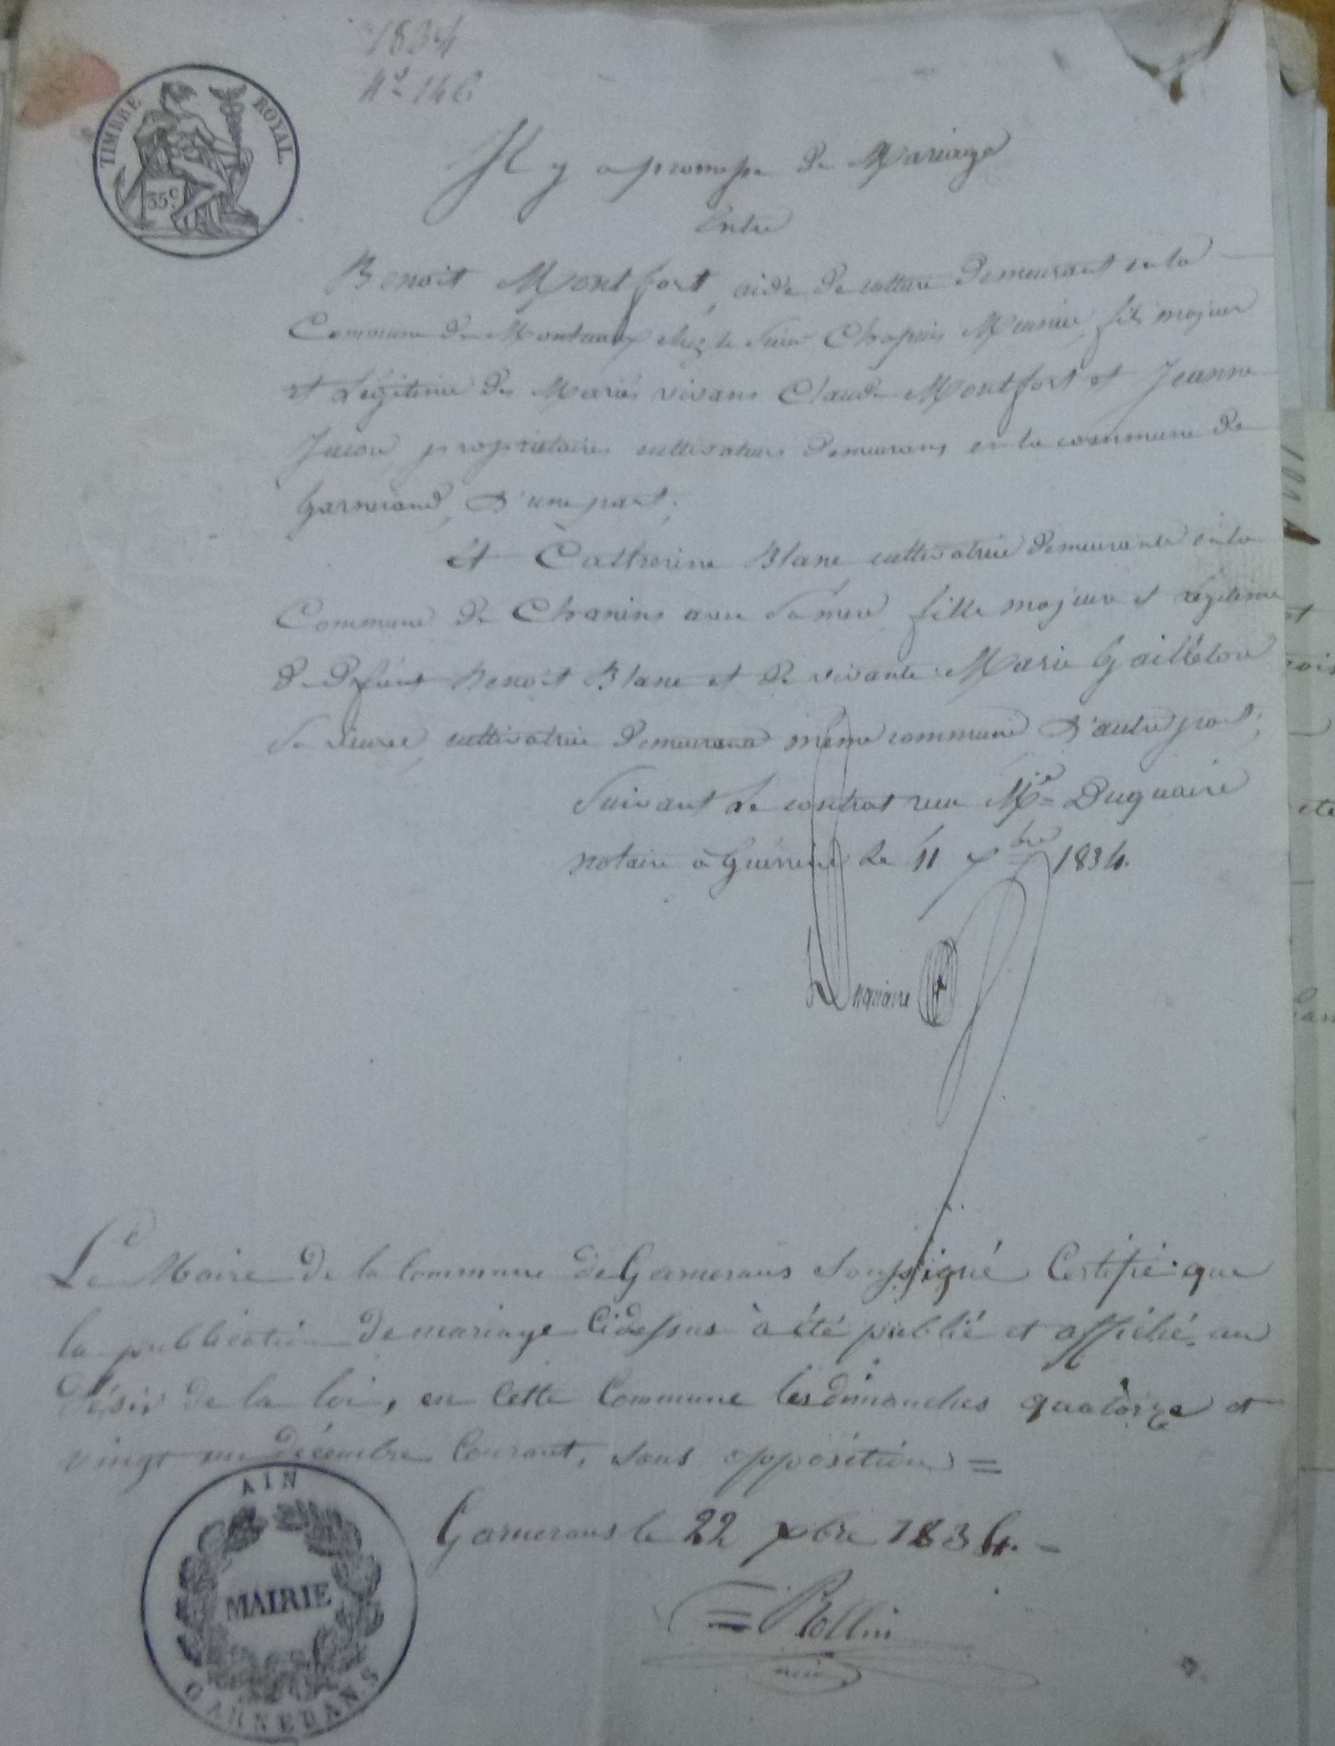 1834
N° 146
TIMBRE ROYAL
35 c
Il y a promesse de Mariage
Entre
Benoit Montfort, aide de culture demeurant en la
Commune de chez le Sieur Chapuis Meunier, fils majeur
et Légitime des Mariés vivans Claude Montfort et Jeanne
propriétaires cultivateurs demeurans en la commune de
Garnerans, d'une part;
Et Catherine Blanc cultivatrice demeurante en la
Commune de Chanins avec sa mere fille majeure et Légitime
de défunt Benoit Blanc et de vivante Marie Gailleton
sa veuve, cultivatrice demeurant même commune d'autre part;
Suivant le contrat reçu Me Duquaire
notaire à le 11 Xbre 1834.
Duquaire
Le Maire de la Commune de Garnerans Soussigné Certifie que
la publication de mariage Cidessus à été publié et affiché au
désir de la loi, en Cette Commune les dimanches quatorze et
vingt un décembre Courant, sans opposition =
Garnerans le 22 xbre 1834. -
Rollin
AIN
MAIRIE
GARNERANS